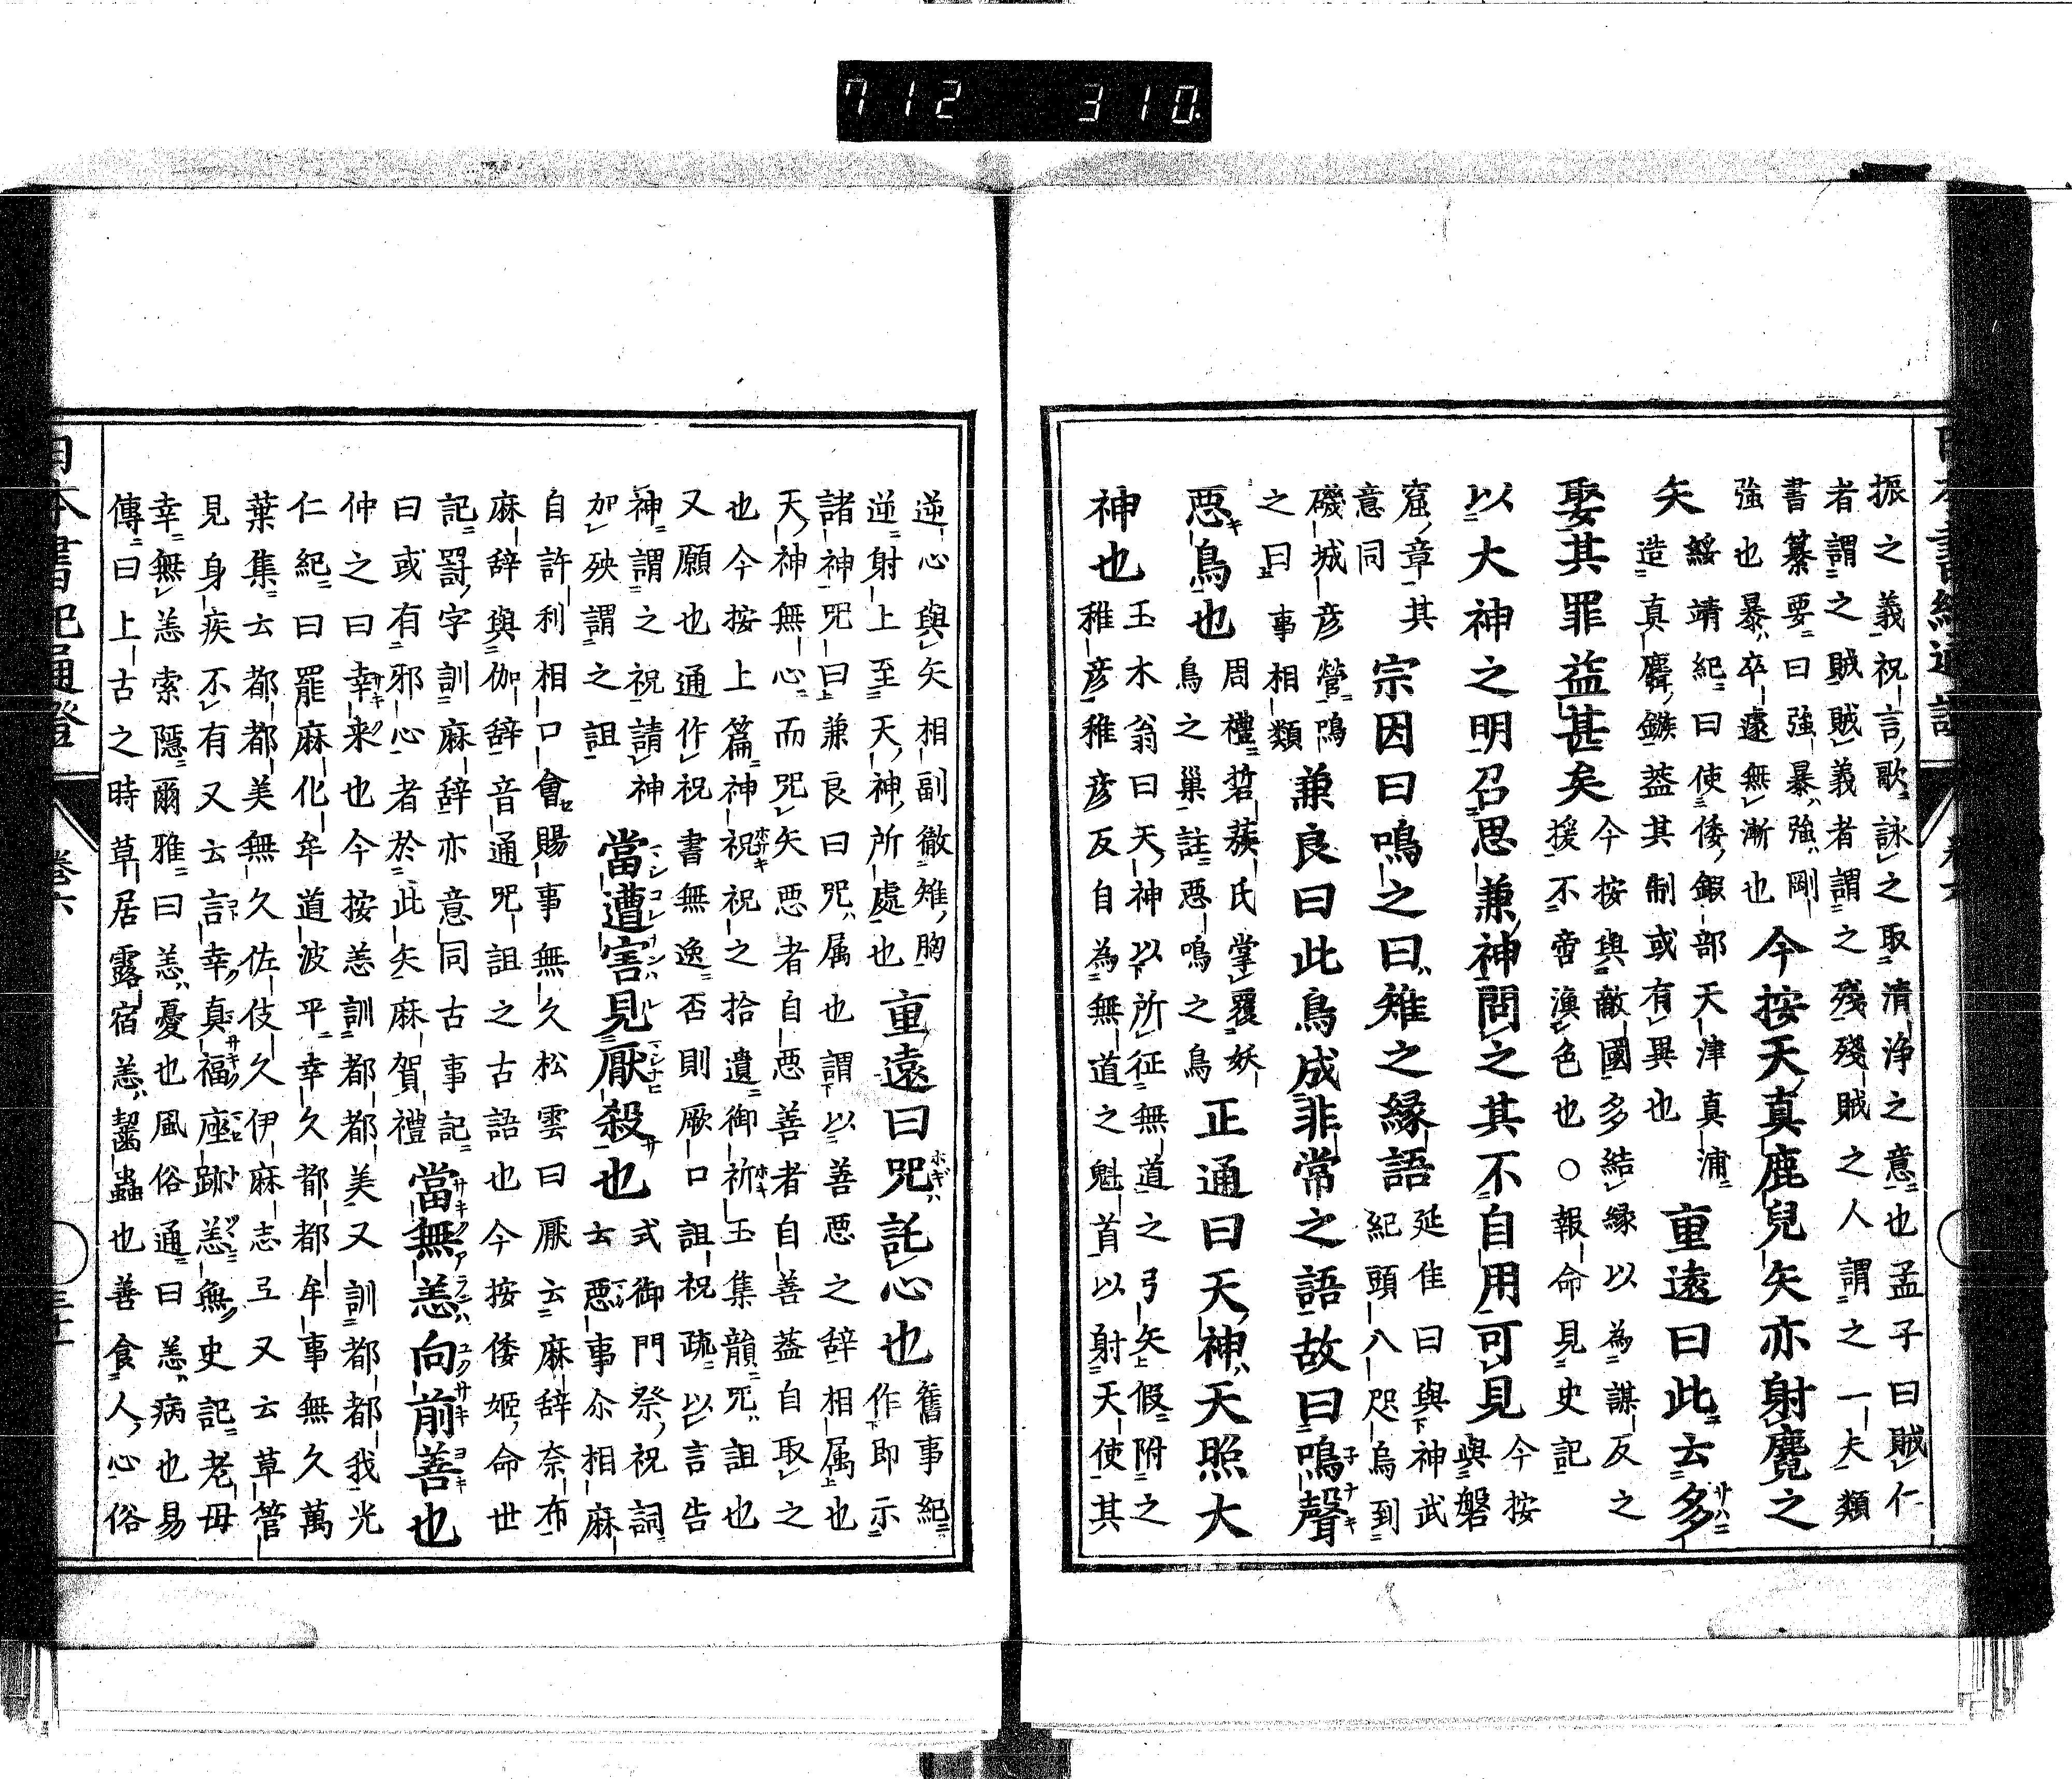 712 310
振之義祝言歌詠之取清浄之意也孟子曰賊仁
者謂之賊賊義者謂之残残賊之人謂之一夫類
書纂要曰強暴強剛
強也暴卒遽無漸也
今按天真鹿兒矢亦射麑之
矢
綏靖紀曰使倭鍛部天津真浦
造真麛鏃蓋其制或有異也
重遠曰此云多
娶其罪益甚矣
今按與敵國多結縁以為謀反之
援不啻漁色也○報命見史記
以大神之明召思兼神問之其不自用可見
今按
與磐
窟章其
意同
宗因曰鳴之曰雉之縁語
延佳曰與神武
紀頭八咫烏到
磯城彦營鳴
之曰事相類
兼良曰此鳥成非常之語故曰鳴聲
悪鳥也
周禮硩蔟氏掌覆妖
鳥之巣註悪鳴之鳥
正通曰天神天照大
神也
玉木翁曰天神以所征無道之弓矢假附之
稚彦稚彦反自為無道之魁首以射天使其
逆心與矢相副徹雉胸
逆射上至天神所處也
重遠曰咒託心也
舊事紀
作即示
諸神咒曰兼良曰咒属也謂以善悪之辞相属也
天神無心而咒矢悪者自悪善者自善蓋自取之
也今按上篇神祝祝之拾遺御祈玉集韻咒詛也
又願也通作祝書無逸否則厥口詛祝疏以言告
神謂之祝請神
加殃謂之詛
當遭害見厭殺也
式御門祭祝詞
云悪事尒相麻
自許利相口會賜事無久松雲曰厭云麻辞奈布
麻辞與伽辞音通咒詛之古語也今按倭姫命世
記詈字訓麻辞亦意同古事記
曰或有邪心者於此矢麻賀禮
當無恙向前善也
仲之曰幸来也今按恙訓都都美又訓都都我光
仁紀曰罷麻化牟道波平幸久都都牟事無久萬
葉集云都都美無久佐伎久伊麻志弖又云草管
見身疾不有又云言幸真福座跡恙無史記老母
幸無恙索隠爾雅曰恙憂也風俗通曰恙病也易
傳曰上古之時草居露宿恙齧蟲也善食人心俗
日本書紀通證
巻六